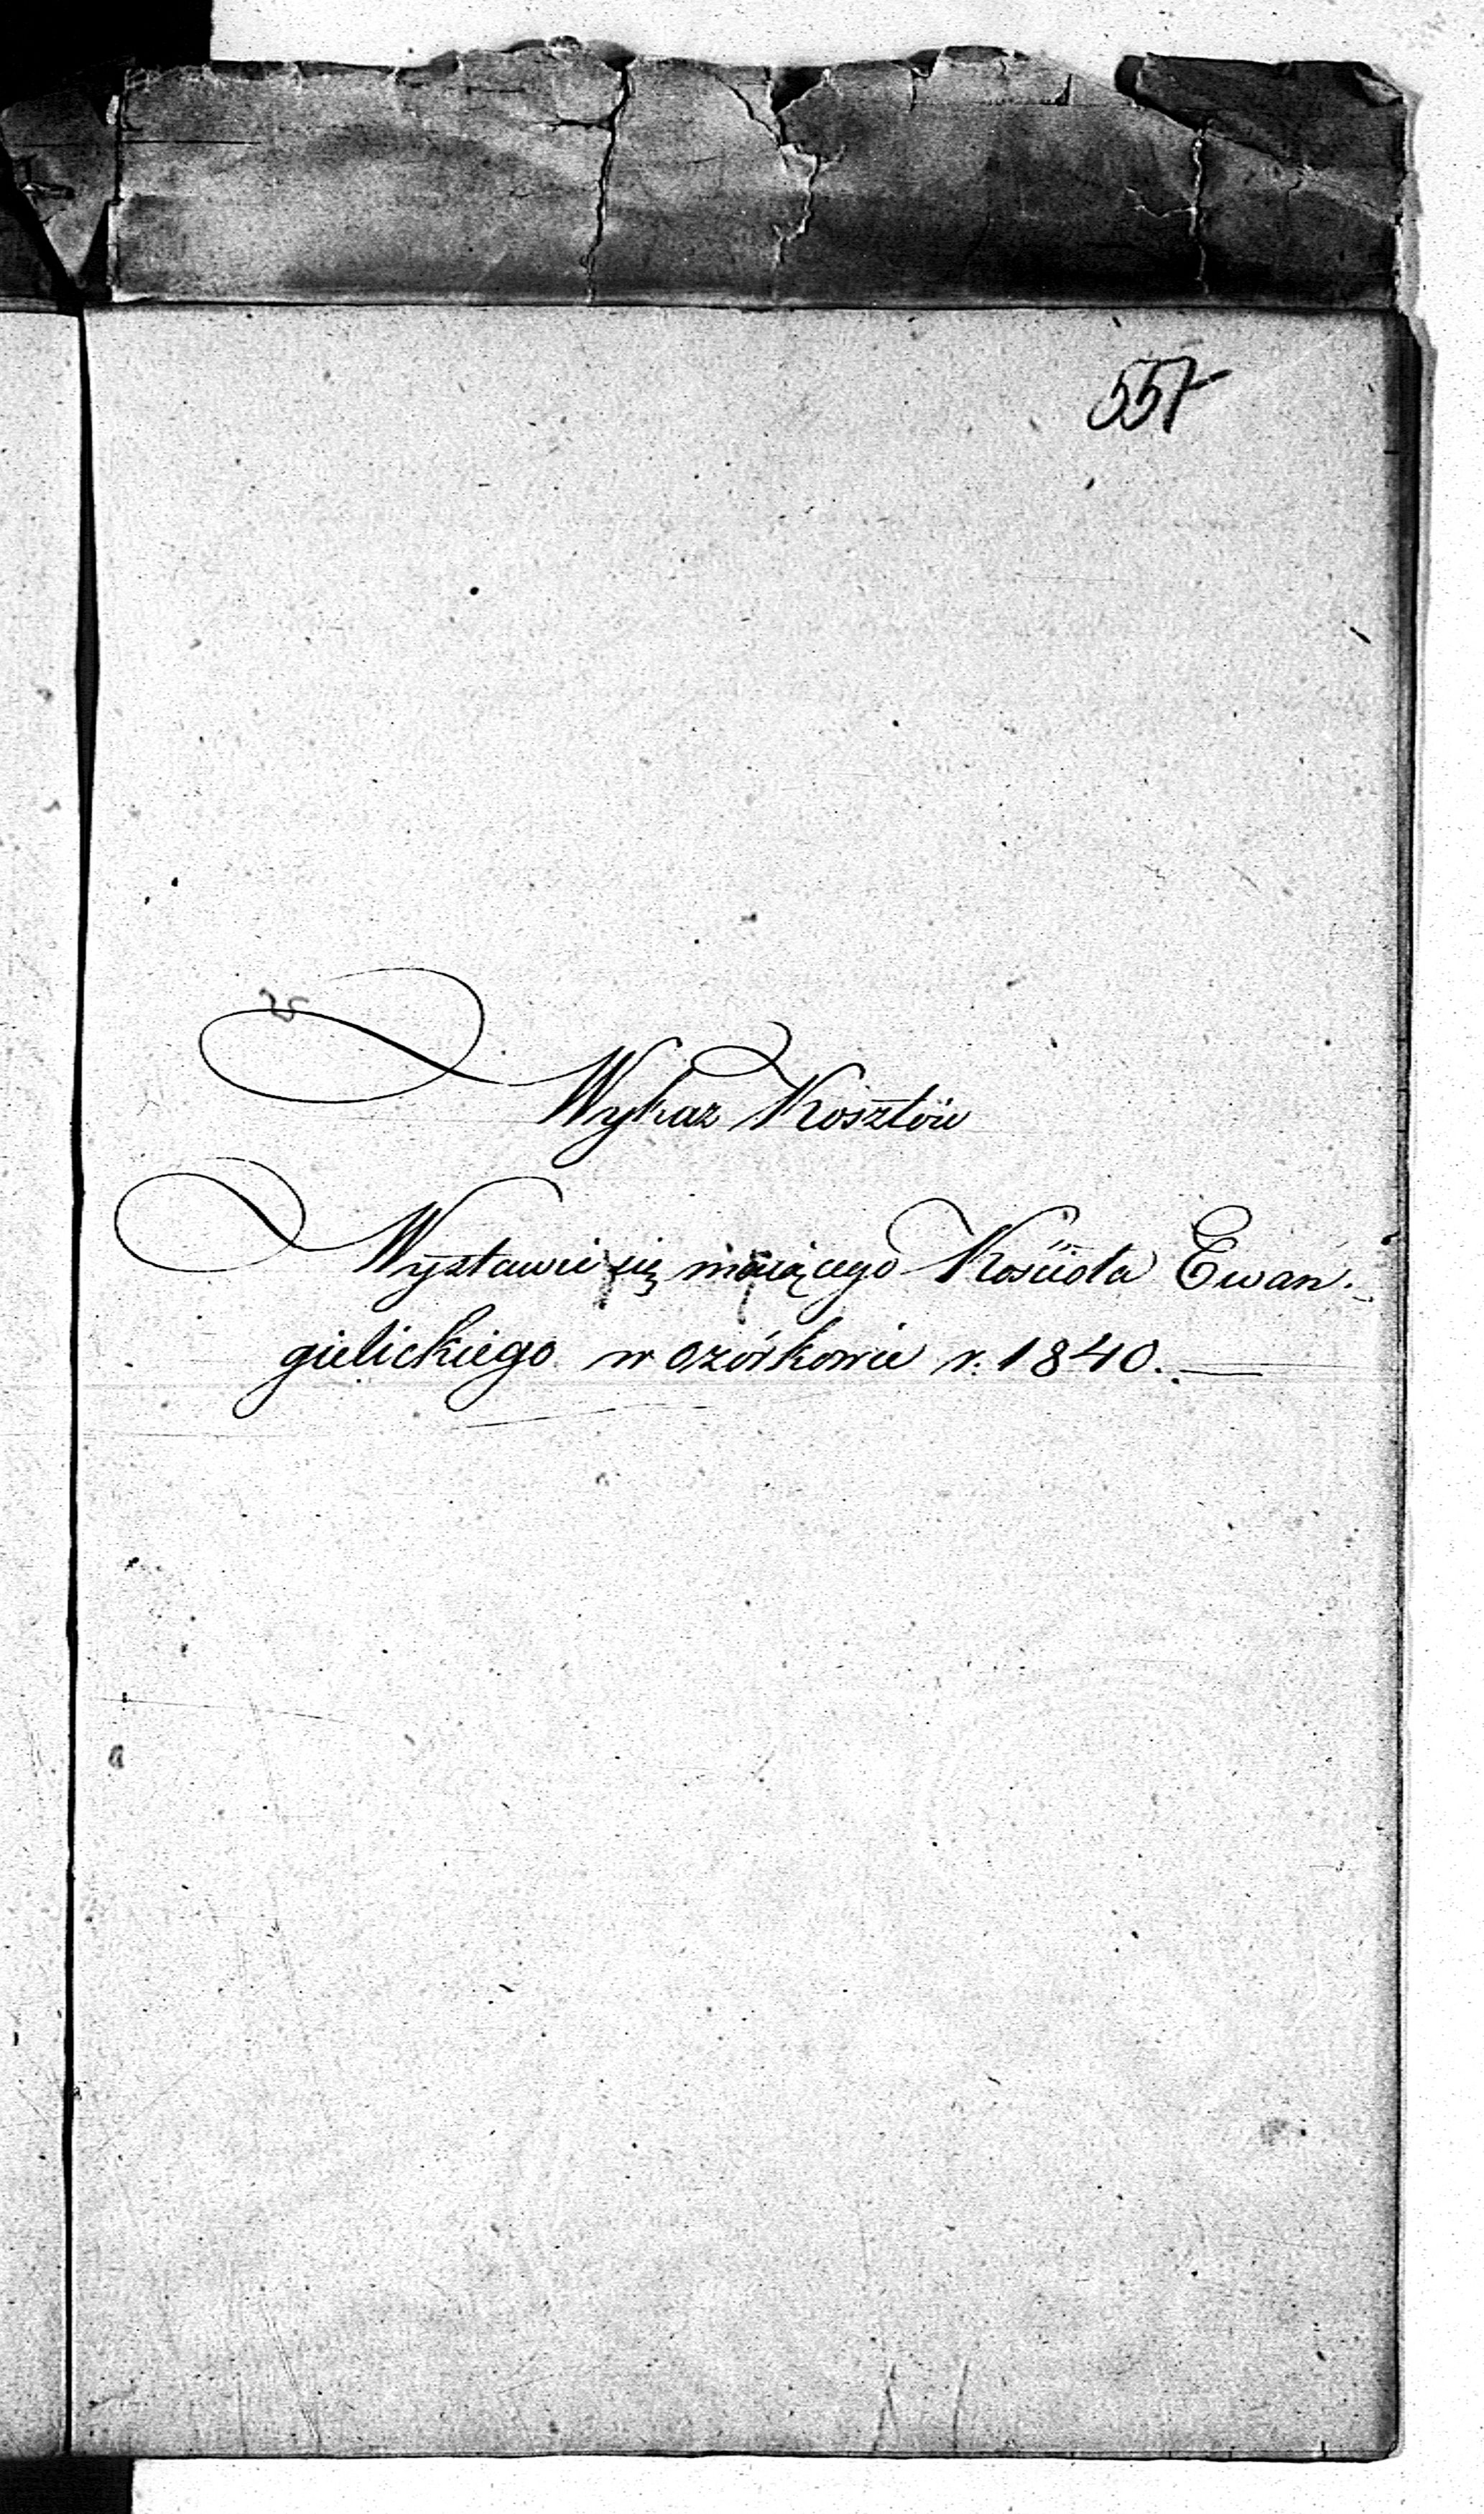 557
Wykaz Kosztów
Wystawić się mającego Kościoła Ewan-
gielickiego w Ozórkowie r. 1840.